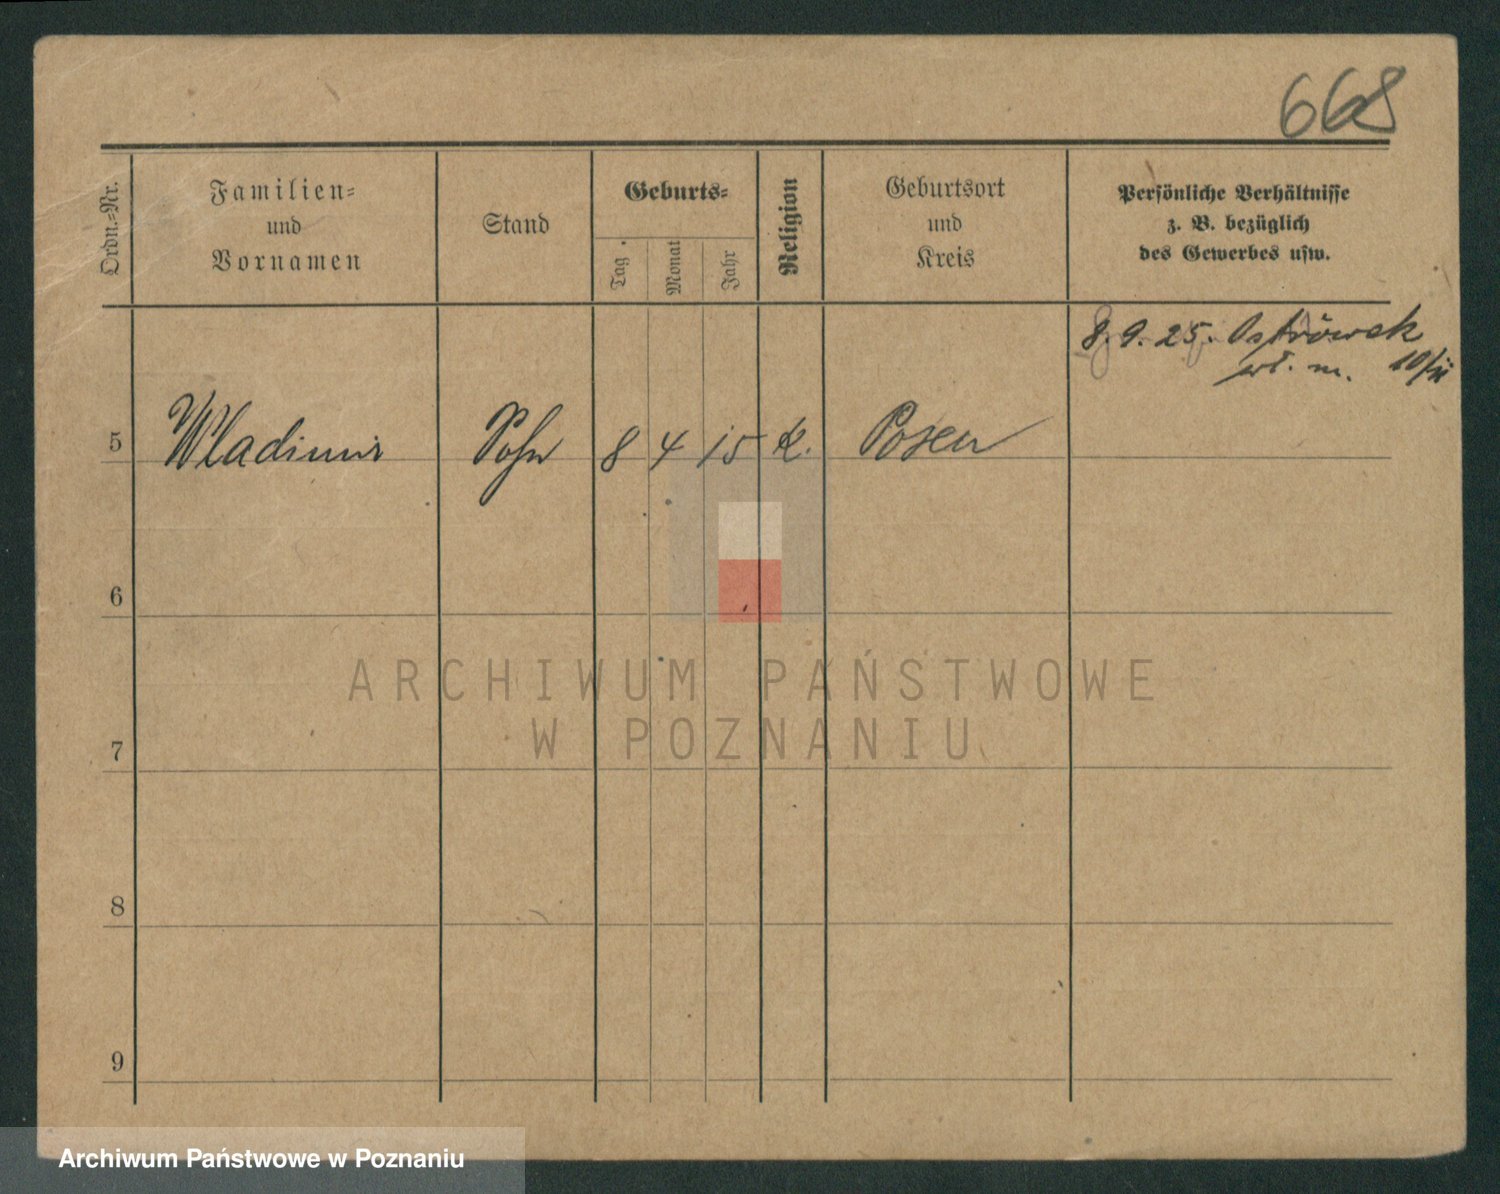 668
Ordn.=Nr.
Familien=
und
Vornamen
Stand
Geburts=
Tag
Monat
Jahr
Religion
Geburtsort
und
Kreis
Persönliche Verhältnisse
z. B. bezüglich
des Gewerbes usw.
8. 9. 25. Ostrówek
wł. m.
5 Wladimir Sohn 8 4 15 K. Posen
6
7
8
9
ARCHIWUM PAŃSTWOWE
W POZNANIU
Archiwum Państwowe w Poznaniu